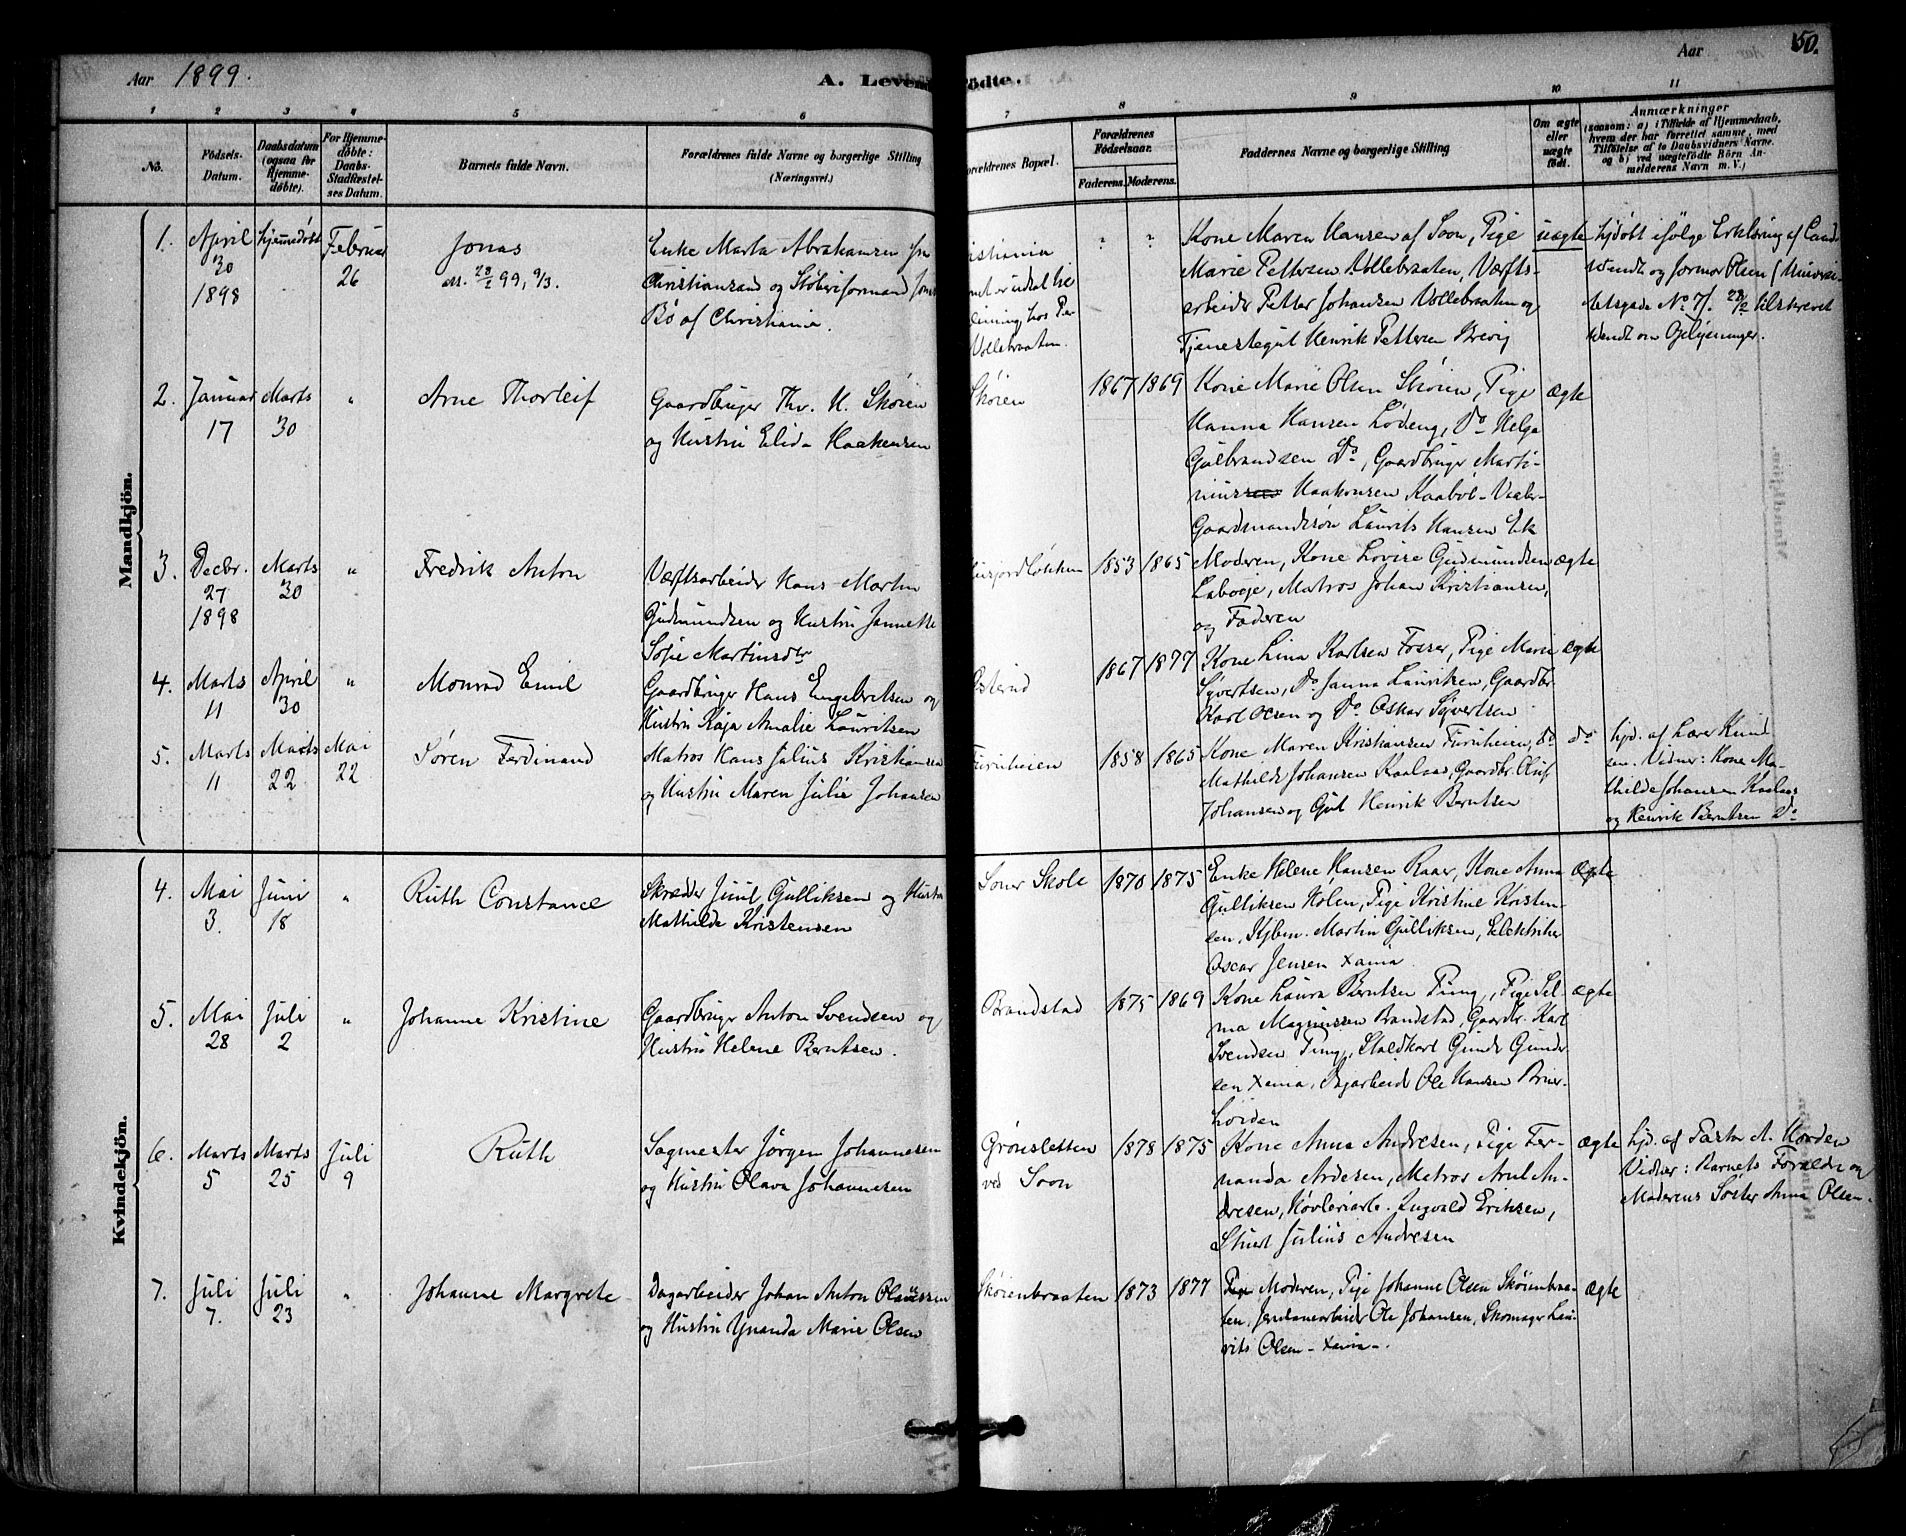 Aar 1899.
A. Levend
födte.
Aar
150.
1 2 3 4 5 6 7 8 9 10 11
No.
Födsels-
Datum.
Daabsdatum
(ogsaa for
Hjemme-
døbte).
For Hjemme-
døbte:
Daabs-
Stadfæstel-
ses Datum.
Barnets fulde Navn.
Forældrenes fulde Navne og borgerlige Stilling
(Næringsvei.)
Forældrenes Bopæl.
Forældrenes
Födselsaar.
Faderens. Moderens.
Faddernes Navne og borgerlige Stilling
Om ægte
eller
uægte
født.
Anmærkninger
(saasom: a) i Tilfælde af Hjemmedaab,
hvem der har forrettet samme, med
Tilføielse af to Daabsvidners Navne.
og b) ved uægtefödte Börn An-
melderens Navn m. V.)
Mandkjön.
1.
April
30
1898
hjemmedöbt
Februar
26
Jonas
99, 9/3.
Enke Marta Abrahamsen fra
Christiansand og Støberiformand
Bö af Christiania.
istiania
Vollebraaten.
? ?
Kone Maren Hansen af Soon, Pige
Marie Pettersen Vollebraaten, Værfts-
arbeider Petter Johansen Vollebraaten og
Tjenestegut Henrik Pettersen Brevig
uægte
hjdöbt ifölge Erklæring af Cand.
Wendt og Jormor Olsen (Universi-
tetsgade No 7). tilskrevet
Wendt om Oplysninger.
2.
Januar
17
Marts
30
"
Arne Thorleif
Gaardbruger Thv. H. Sköien
og Hustru Elida Haakensen
Sköien
1867 1869
Kone Marie Olsen Sköien, Pige
Hanna Hansen Lödeng, Do Helga
Gulbrandsen Do, Gaardbruger Marti-
nius Haakonsen Kaabøl-Vestre-
Gaardmandssøn Laurits Hansen Ek
ægte
3.
Decbr.
27
1898
Marts
30
"
Fredrik Anton
Værftsarbeider Hans Martin
Gudmundsen og Hustru Jannette
Sofie Martinsdtr
1853 1865
Moderen, Kone Lovise Gudmundsen
Labo, Matros Johan Kristiansen,
og Faderen
ægte
4.
Marts
11
April
30
"
Monrad Emil
Gaardbruger Hans Engebretsen og
Hustru Kaja Amalie Lauritsen
Osterud
1867 1877
Kone Lina Karlsen Fosser, Pige Marie
Syvertsen, Do Janna Lauritsen, Gaardbr.
Karl Olsen og Do Oskar Syvertsen
ægte
5.
Marts
11
Marts
22
Mai
22
Sören Ferdinand
Matros Hans Julius Kristiansen
og Hustru Maren Julie Johansen
Furuheien
1858 1865
Kone Maren Kristiansen Furuheien, Do
Mathilde Johansen Kaalaas, Gaardbr. Oluf
Johansen og Gut Henrik Berntsen
do
hjd. af Lærer Knud
sen. Vidner: Kone Ma-
thilde Johansen Kaalaas
og Henrik Berntsen Do
Kvindekjön.
4.
Mai
3.
Juni
18
"
Ruth Constance
Skrædder Juul Gulliksen og Hustru
Mathilde Kristensen
Soner Skole
1870 1875
Enke Helene Hansen Raaer, Kone Anna
Gulliksen Holen, Pige Kristine Kristen-
sen, Kjbm. Martin Gulliksen, Elektriker
Oscar Jensen Xania
Ægte
5.
Mai
28
Juli
2
"
Johanne Kristine
Gaardbruger Anton Svendsen og
Hustru Helene Berntsen.
Brandstad
1875 1869
Kone Laura Berntsen Tung, Pige Sel-
ma Magnussen Brandstad, Gaardbr. Karl
Svendsen Tung, Staldkarl Gunder Gunder-
sen Xania, Ole Hansen
ægte
6.
Marts
5
Marts
25
Juli
9
Ruth
Sagmester Jørgen Johannesen
og Hustru Olava Johannesen
Grönsletten
ved Soon
1878 1875
Kone Anna Andresen, Pige Fer-
nanda Andresen, Matros Arnt An-
dresen, Høvleriarb. Ingvald Eriksen,
Stuert Julius Andresen
ægte
hjd. af Pastor A. Horden
Vidner: Barnets Forældre og
Moderens Söster Anna Olsen.
7.
Juli
7.
Juli
23
"
Johanne Margrete
Dagarbeider Johan Anton Olaussen
og Hustru Ynanda Marie Olsen
Sköienbraaten
1873 1877
Pige Moderen, Pige Johanne Olsen Sköienbraa-
ten, Jernbanearbeider Ole Johansen, Skomager Lau-
rits Olsen - Xania -.
ægte